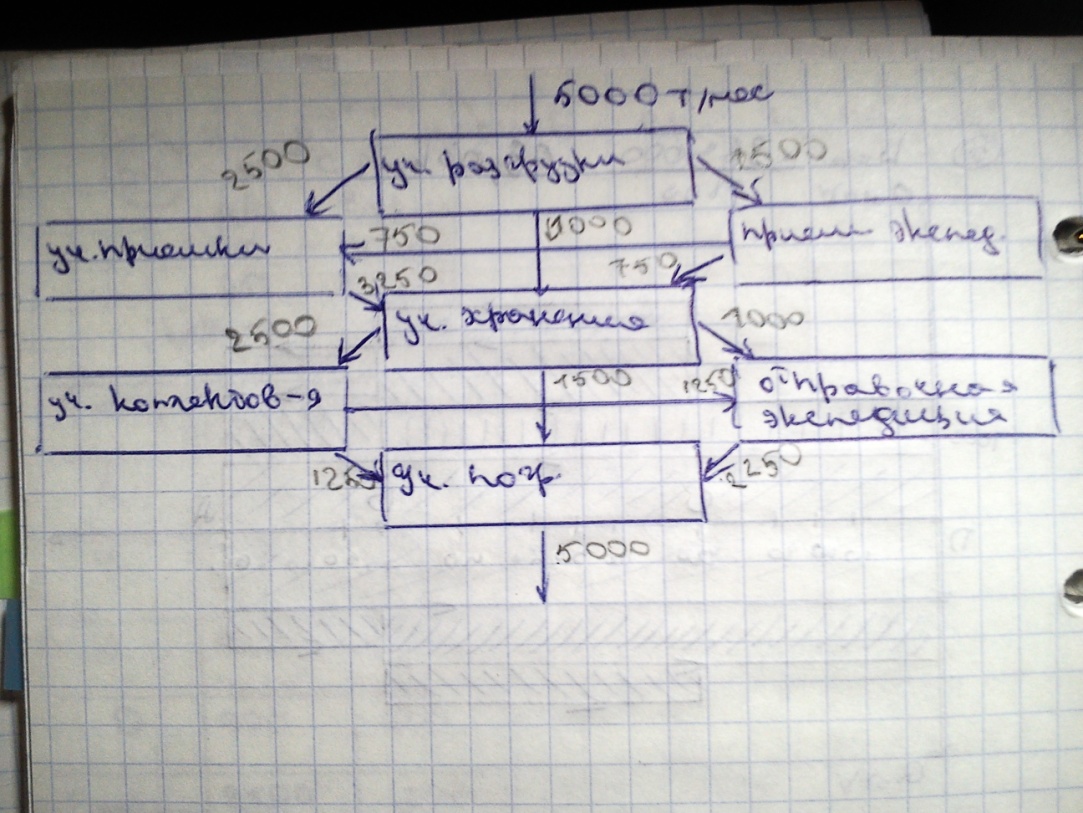 5000 т/мес
2500
уч. разгрузки
1500
уч. приемки
750
1000
прием. экспед.
3250
750
2500
уч. хранения
1000
уч. комлектов-я
1500
1250
отправочная
экспедиция
1250
уч. погр.
2250
5000